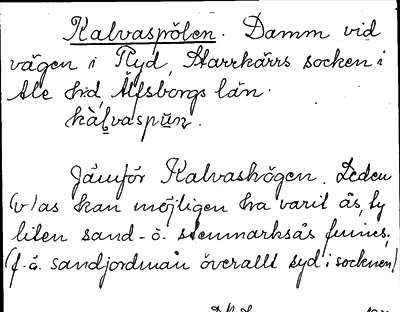 Kalvaspölen. Damm vid
vägen i Ryd, Starrkärrs socken i
Ale hrd, Älfsborgs län.
kàlvaspu̠n.
Jämför Kalvashögen. Leden
(v)as kan möjligen ha varit ås, ty
liten sand- o. stenmarksås finnes,
(f.ö. sandjordmån överallt syd i socknen)